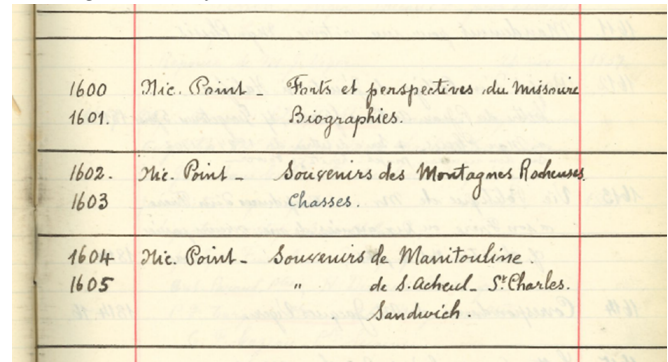 1600 Nic. Point - Forts et perspectives du Missouri
1601. Biographies.
1602. Nic. Point - Souvenirs des Montagnes Rocheuses
1603 Chasses.
1604 Nic. Point - Souvenirs de Manitouline.
1605 " de S. Acheul - St Charles.
Sandwich.